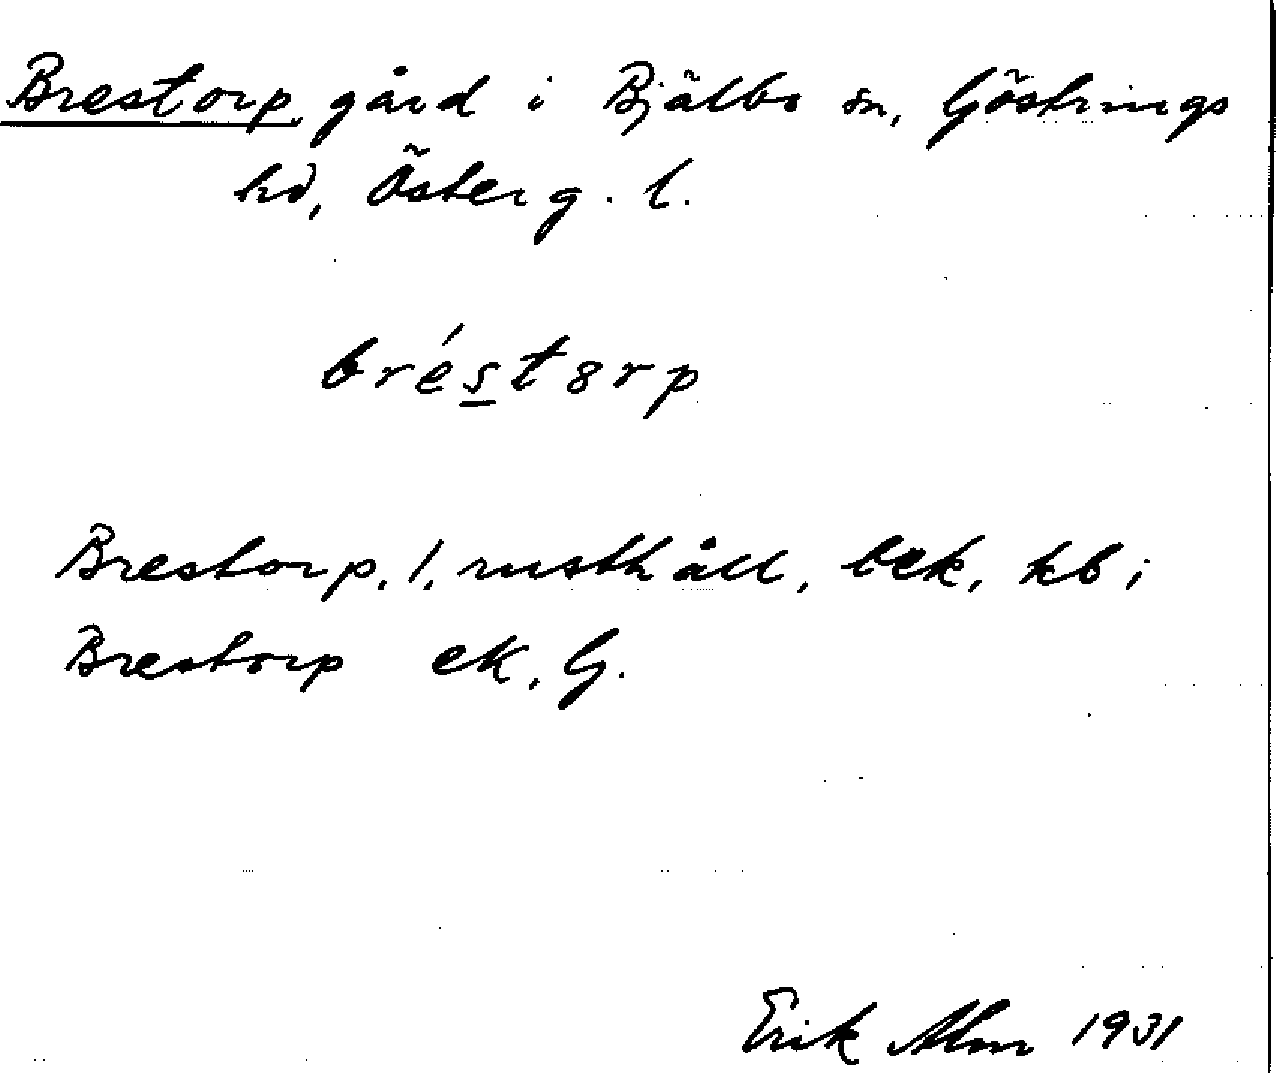 Brestorp, gård i Bjälbo sn, Göstrings
hd, Österg. l.
bréstȣrp
Brestorp, 1, rusthåll, bek, kb;
Brestorp ek, G.
Erik Alm 1931